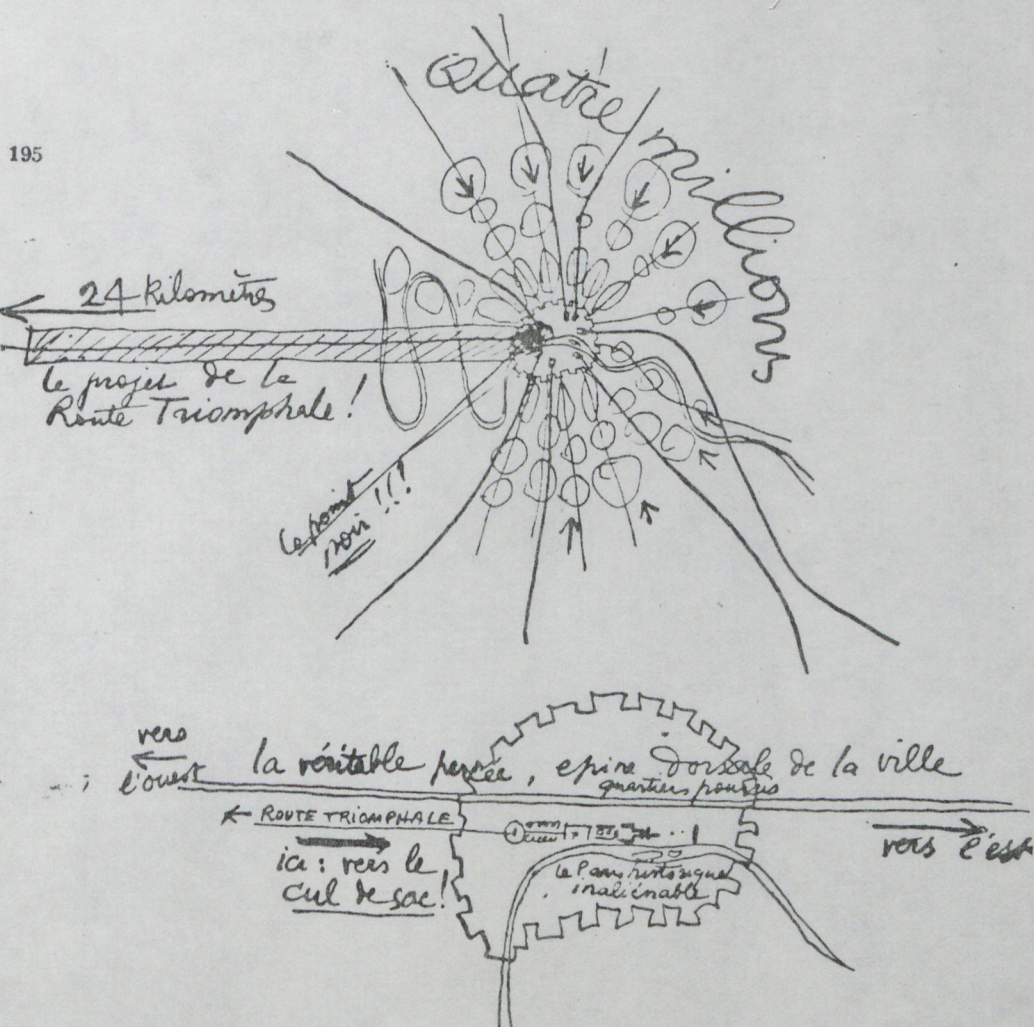 Quatre millions
195
24 Kilomètres
le projet de la
Route Triomphale !
le point
noir !!!
vers
l'ouest
la véritable percée, epine dorsale de la ville
quartiers pourris
← ROUTE TRIOMPHALE
ici : vers le
cul de sac !
vers l'est
le Paris historique
inaliénable